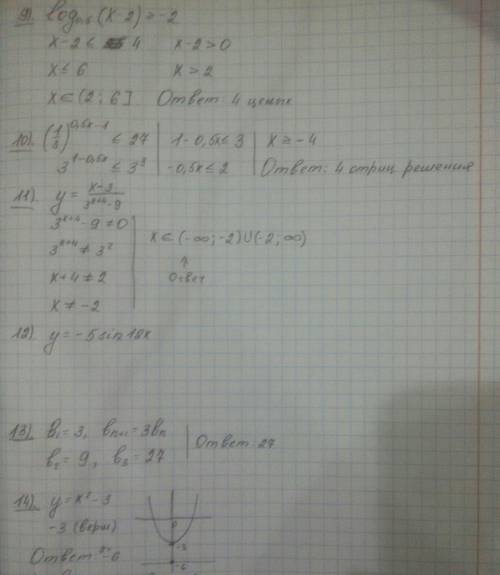 9). log₀,₅(x-2) ≥ -2
x-2 ≤ 4 x-2>0
x ≤ 6 x > 2
x ∈ (2; 6] Ответ: 4 целых
10). (1/3)^(0,5x-1) ≤ 27 | 1-0,5x ≤ 3 | x ≥ -4
3^(1-0,5x) ≤ 3³ | -0,5x ≤ 2 | Ответ: 4 отриц решения
11). y = (x-3)/(3^(x+4)-9)
3^(x+4) - 9 ≠ 0
3^(x+4) ≠ 3² x ∈ (-∞; -2)∪(-2; ∞)
x+4 ≠ 2 ↑
x ≠ -2 Ответ
12). y = -5sin18x
13). b₁ = 3, bₙ₊₁ = 3bₙ | Ответ 27
b₂ = 9, b₃ = 27
14). y = x² - 3
-3 (верш) 0
Ответ: -6 -3
-6